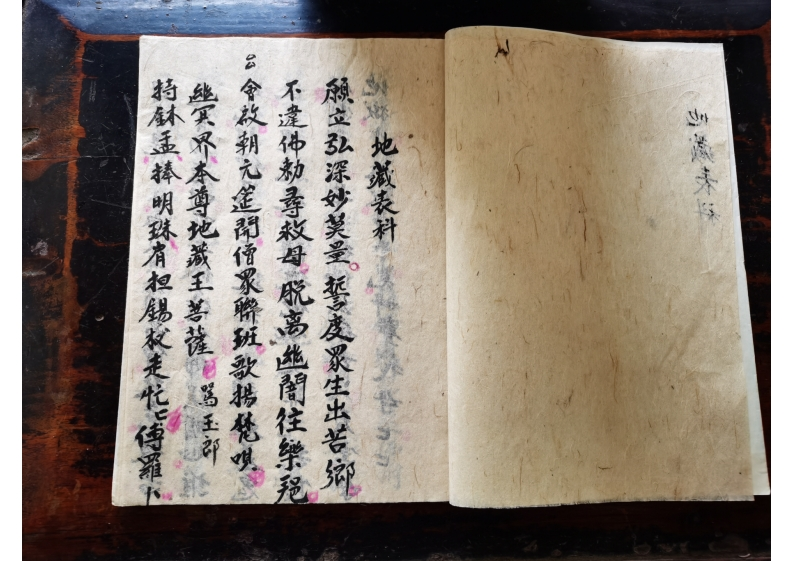 地藏表科
地藏表科
願立弘深妙莫量 誓度眾生出苦鄉
不違佛勅尋救母 脱离幽闇往樂
会啟朝元筵開僧眾聯班歌揚梵唄
幽冥界本尊地藏王菩薩 罵玉郎
持鉢盂捧明珠有担錫杖走忙〻傅羅卜